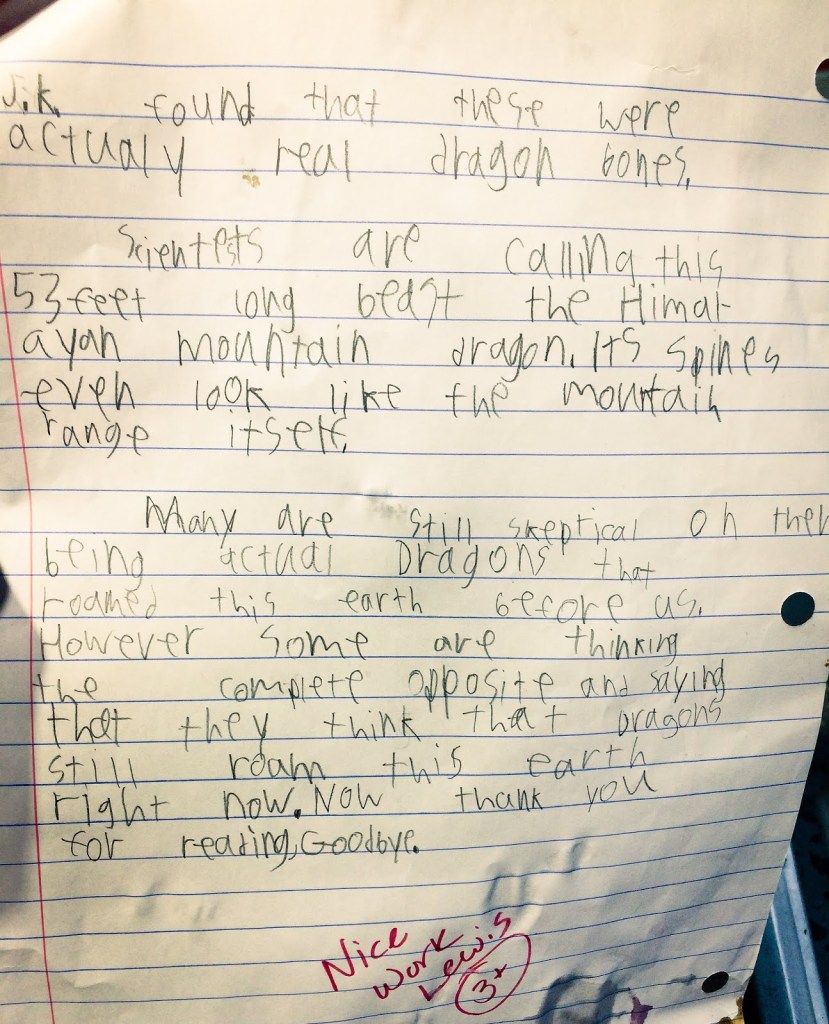 J.K. found that these were
actualy real dragon bones.
Scientists are calling this
53 feet long beast the Himal-
ayan mountain dragon. Its spines
even look like the mountain
range itself.
Many are still skeptical on them
being actual Dragons that
roamed this earth before us.
However some are thinking
the complete opposite and saying
that they think that Dragons
still roam this earth
right now. Now thank you
for reading, Goodbye.
Nice
work
Lewis
3+